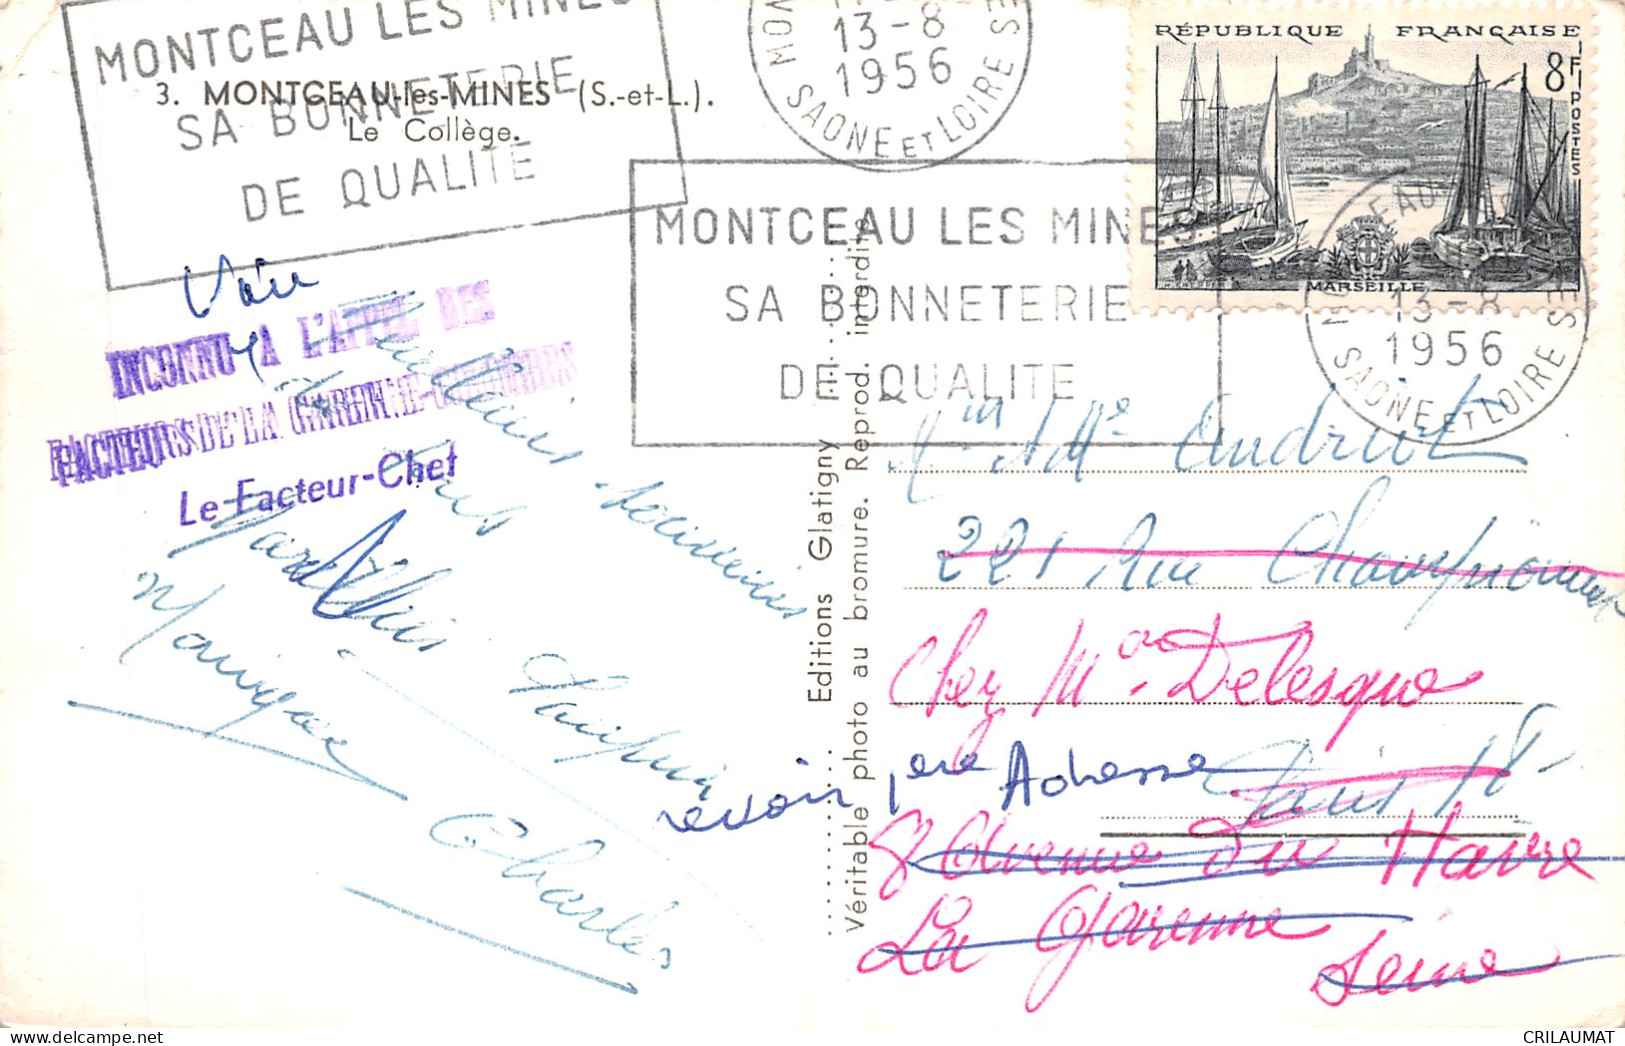 MONTCEAU LES MINES
SA BONNETERIE
DE QUALITE
3. MONTCEAU-les-MINES (S.-et-L.).
Le Collège.
13-8
1956
SAONE ET LOIRE
RÉPUBLIQUE FRANÇAISE
8F
POSTES
MARSEILLE
MONTCEAU LES MINES
SA BONNETERIE
DE QUALITE
13-8
1956
SAONE ET LOIRE
INCONNU A L'APPEL DES
FACTEURS DE LA GARENNE-COLOMBES
Le Facteur-Chef
Meilleurs souvenirs
Monique
Charles
Editions Glatigny
Véritable photo au bromure. Reprod. interdite
221 Rue Championnet
Chez Mr Delesque
Paris 18
revoir 1ere Adresse
8 Avenue Du Havre
La Garenne
Seine
CRILAUMAT